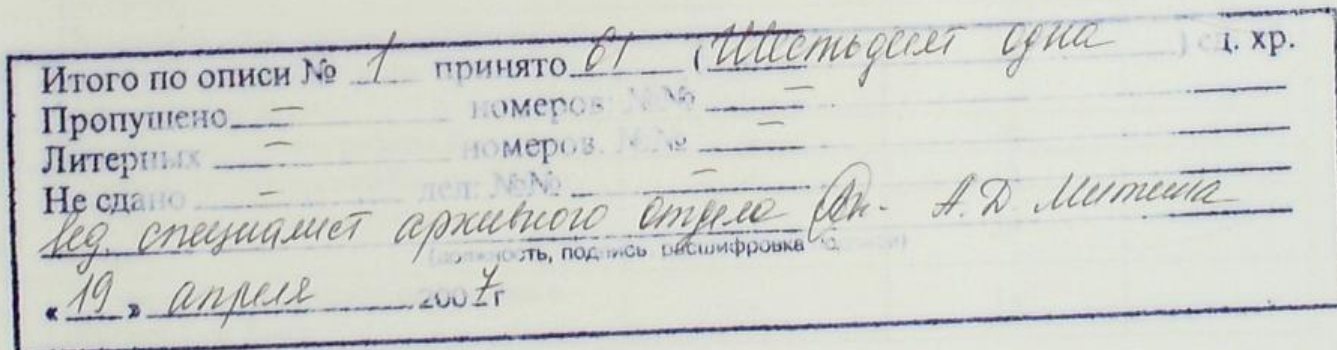 Итого по описи № 1 принято 61 (Шестьдесят одна) ед. хр.
Пропущено — номеров: №№ —
Литерных — номеров: №№ —
Не сдано — дел: №№ —
Вед. специалист архивного отдела А.Д
(должность, подпись расшифровка
«19» апреля 2007г